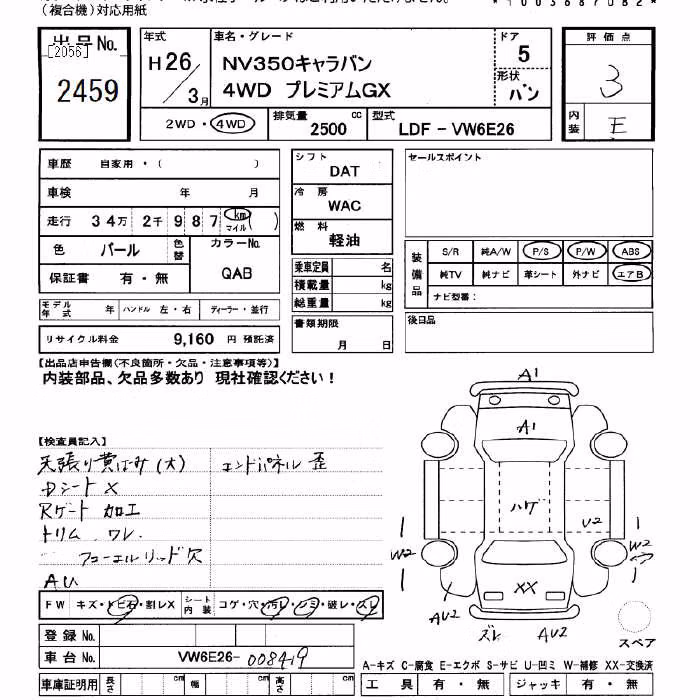 (複合機)対応用紙
出品No.
[2056]
2459
年式
H26/3月
車名・グレード
NV350キャラバン
4WD プレミアムGX
ドア
5
形状
バン
評価点
3
内装
E
2WD・4WD
排気量
2500 cc
型式
LDF－VW6E26
車歴 自家用・( )
車検 年 月
走行 34万2千987 km マイル ( )
色 パール 色替
カラーNo.
QAB
保証書 有・無
モデル年式 年 ハンドル 左・右 ディーラー・並行
リサイクル料金 9,160 円 預託済
シフト
DAT
冷房
WAC
燃料
軽油
乗車定員 名
積載量 kg
総重量 kg
書類期限
月 日
セールスポイント
装備品
S/R 純A/W P/S P/W ABS
純TV 純ナビ 革シート 外ナビ エアB
ナビ型番：
後日品
【出品店申告欄(不良箇所・欠品・注意事項等)】
内装部品、欠品多数あり 現社確認ください！
【検査員記入】
天張り黄ばみ(大) エンドパネル 歪
Dシート X
Rゲート 加工
トリム ワレ
フューエルリッド欠
AU
FW キズ・トビ石・割レX シート内装 コゲ・穴・汚レ・シミ・破レ・スレ
登録No.
車台No. VW6E26- 008419
車庫証明用 長さ cm 幅 cm 高さ cm
A1
A1
ハゲ
U2
W2
W2
XX
AU2
ズレ
AU2
スペア
A-キズ C-腐食 E-エクボ S-サビ U-凹ミ W-補修 XX-交換済
工具 有・無 ジャッキ 有・無